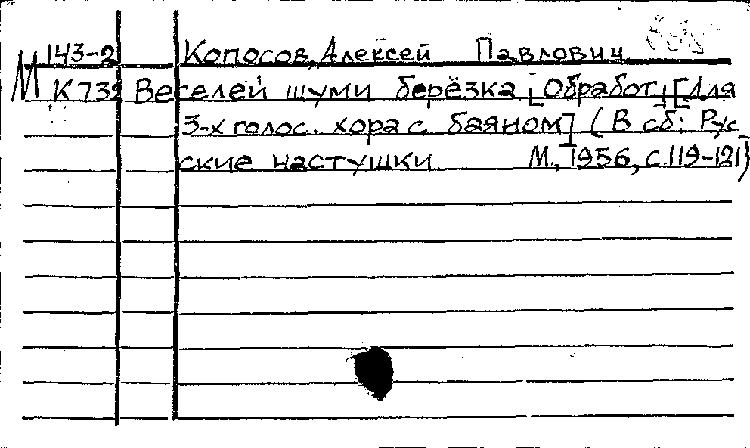 М 143-2 Копосов, Алексей Павлович
К 732 Веселей шуми берёзка. [Обработ.] [Для
3-х голос. хора с баяном] (В сб: Рус
ские частушки М., 1956, с. 119-121)